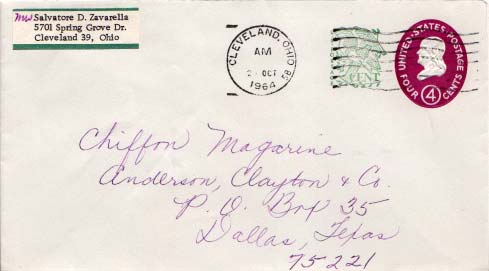 Mrs Salvatore D. Zavarella
5701 Spring Grove Dr.
Cleveland 39, Ohio
CLEVELAND, OHIO
AM
OCT
1964
CENT
UNITED·STATES·POSTAGE
4
FOUR CENTS
Chiffon Magarine
Anderson, Clayton & Co.
P. O. Box 35
Dallas, Texas
75221